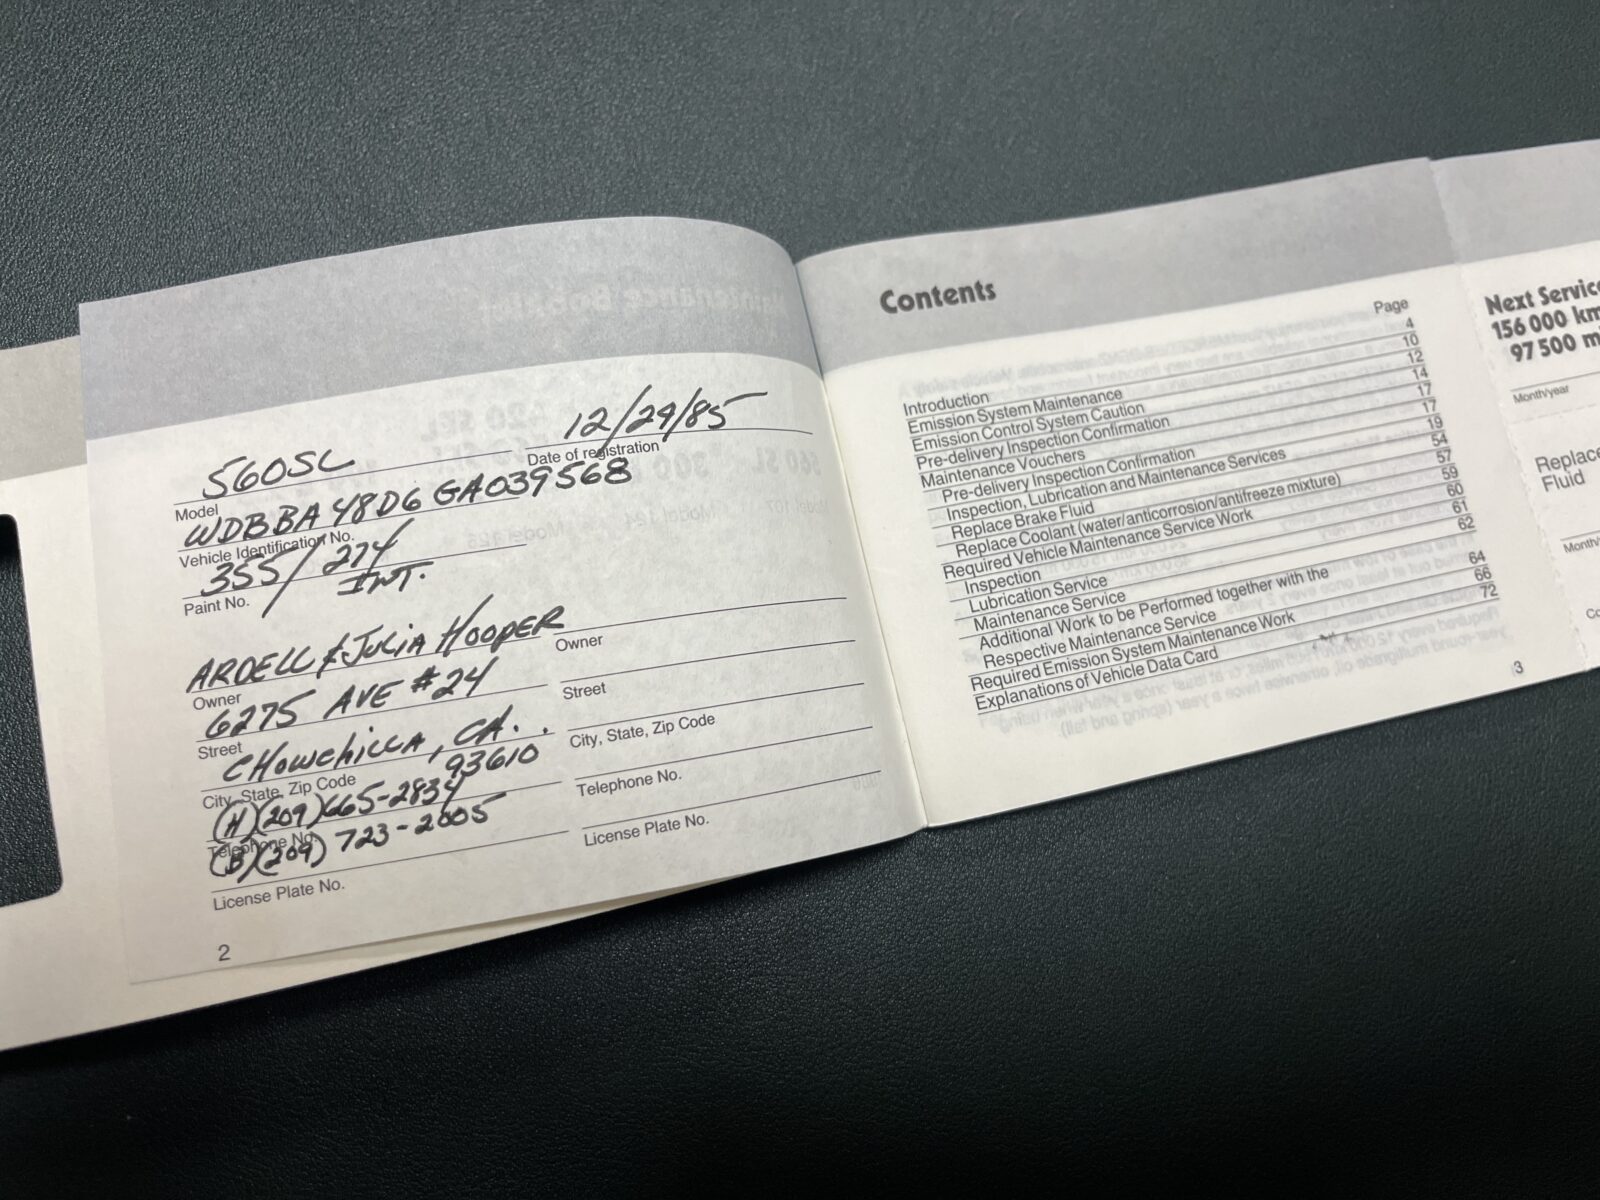 560SL
12/29/85
Model
Date of registration
WDBBA48D6GA039568
Vehicle Identification No.
355/274
INT.
Paint No.
ARDELL & JULIA HOOPER
Owner
6275 AVE #24
Street
CHOWCHILLA, CA.
93610
City, State, Zip Code
(H)(209)665-2834
Telephone No.
(B)(209) 723-2005
License Plate No.
Owner
Street
City, State, Zip Code
Telephone No.
License Plate No.
2
Contents
Page
Introduction 4
Emission System Maintenance 10
Emission Control System Caution 12
Pre-delivery Inspection Confirmation 14
Maintenance Vouchers 17
Pre-delivery Inspection Confirmation 17
Inspection, Lubrication and Maintenance Services 19
Replace Brake Fluid 54
Replace Coolant (water/anticorrosion/antifreeze mixture) 57
Required Vehicle Maintenance Service Work 59
Inspection 60
Lubrication Service 61
Maintenance Service 62
Additional Work to be Performed together with the
Respective Maintenance Service 64
Required Emission System Maintenance Work 66
Explanations of Vehicle Data Card 72
3
Next Service
156 000 km
97 500 m
Month/year
Replace
Fluid
Month/
Co